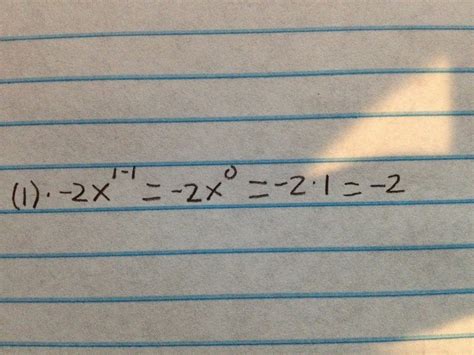 (1)·-2x¹⁻¹ = -2x⁰ = -2·1 = -2